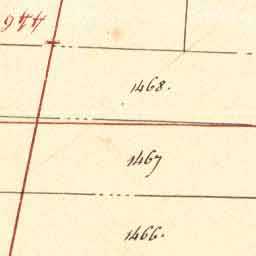 944
1468.
1467
1466.